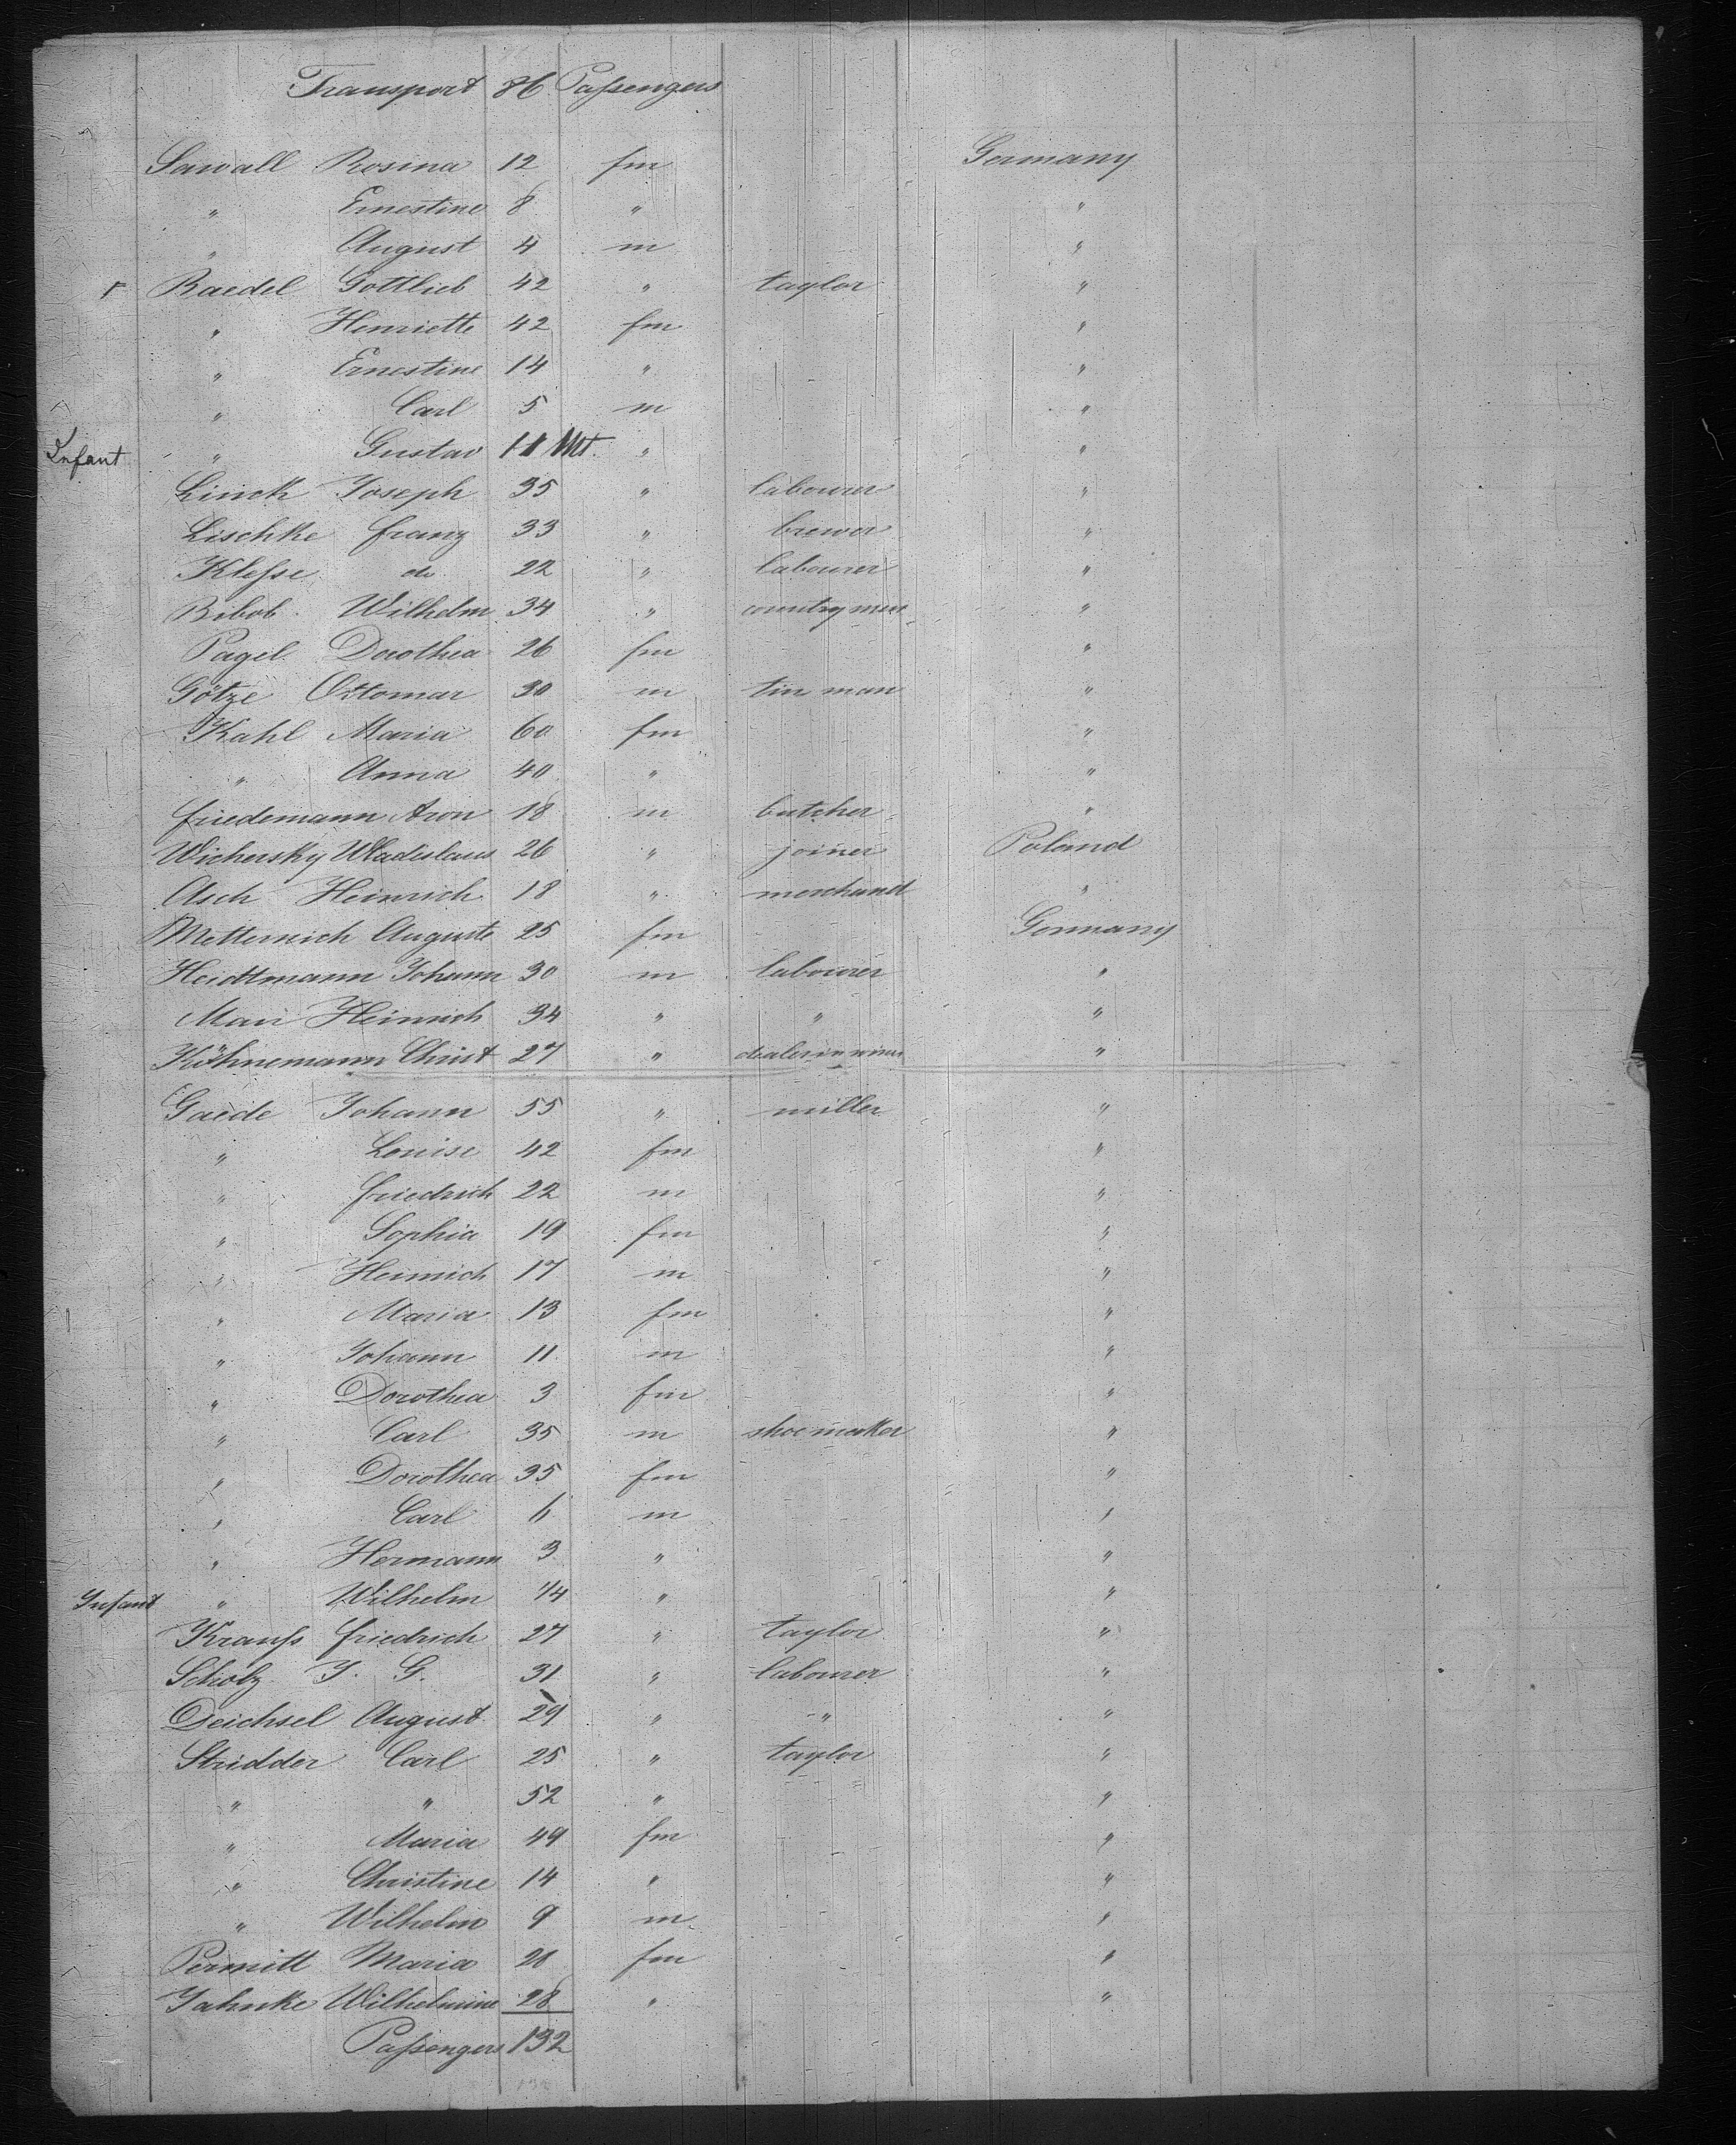 Transport 86 Passengers
Sawall Rosina 12 fm Germany
" Ernestine 8 " "
" August 4 m "
r Raedel Gottlieb 42 " taylor "
" Henriette 42 fm "
" Ernestine 14 " "
" Carl 5 m "
Infant " Gustav 11 Mt. " "
Linck Joseph 35 " labourer "
Lischke Franz 33 " brewer "
Klesse do 22 " labourer "
Bibob. Wilhelm 34 " country man "
Pagel Dorothea 26 fm "
Götze Ottomar 30 m tin man "
Kahl Maria 60 fm "
" Anna 40 " "
Friedemann Aron 18 m butcher "
Wichersky Wladislaus 26 " joiner Poland
Asch Heinrich 18 " merchand "
Metternich Auguste 25 fm Germany
Heidtmann Johann 30 m labourer "
Mau Heinrich 34 " " "
Köhnemann Christ 27 " dealer in wines "
Gaede Johann 55 " miller "
" Louise 42 fm "
" Friedrich 22 m "
" Sophia 19 fm "
" Heinrich 17 m "
" Maria 13 fm "
" Johann 11 m "
" Dorothea 3 fm "
" Carl 35 m shoe maker "
" Dorothea 35 fm "
" Carl 6 m "
" Hermann 3 " "
Infant " Wilhelm 1/4 " "
Krauss Friedrich 27 " taylor "
Scholz J. G. 31 " labourer "
Deichsel August 29 " " "
Stridder Carl 25 " taylor "
" " 52 " "
" Maria 49 fm "
" Christine 14 " "
" Wilhelm 9 m "
Permitt Maria 28 fm "
Jahnke Wilhelmine 28 " "
Passengers 132